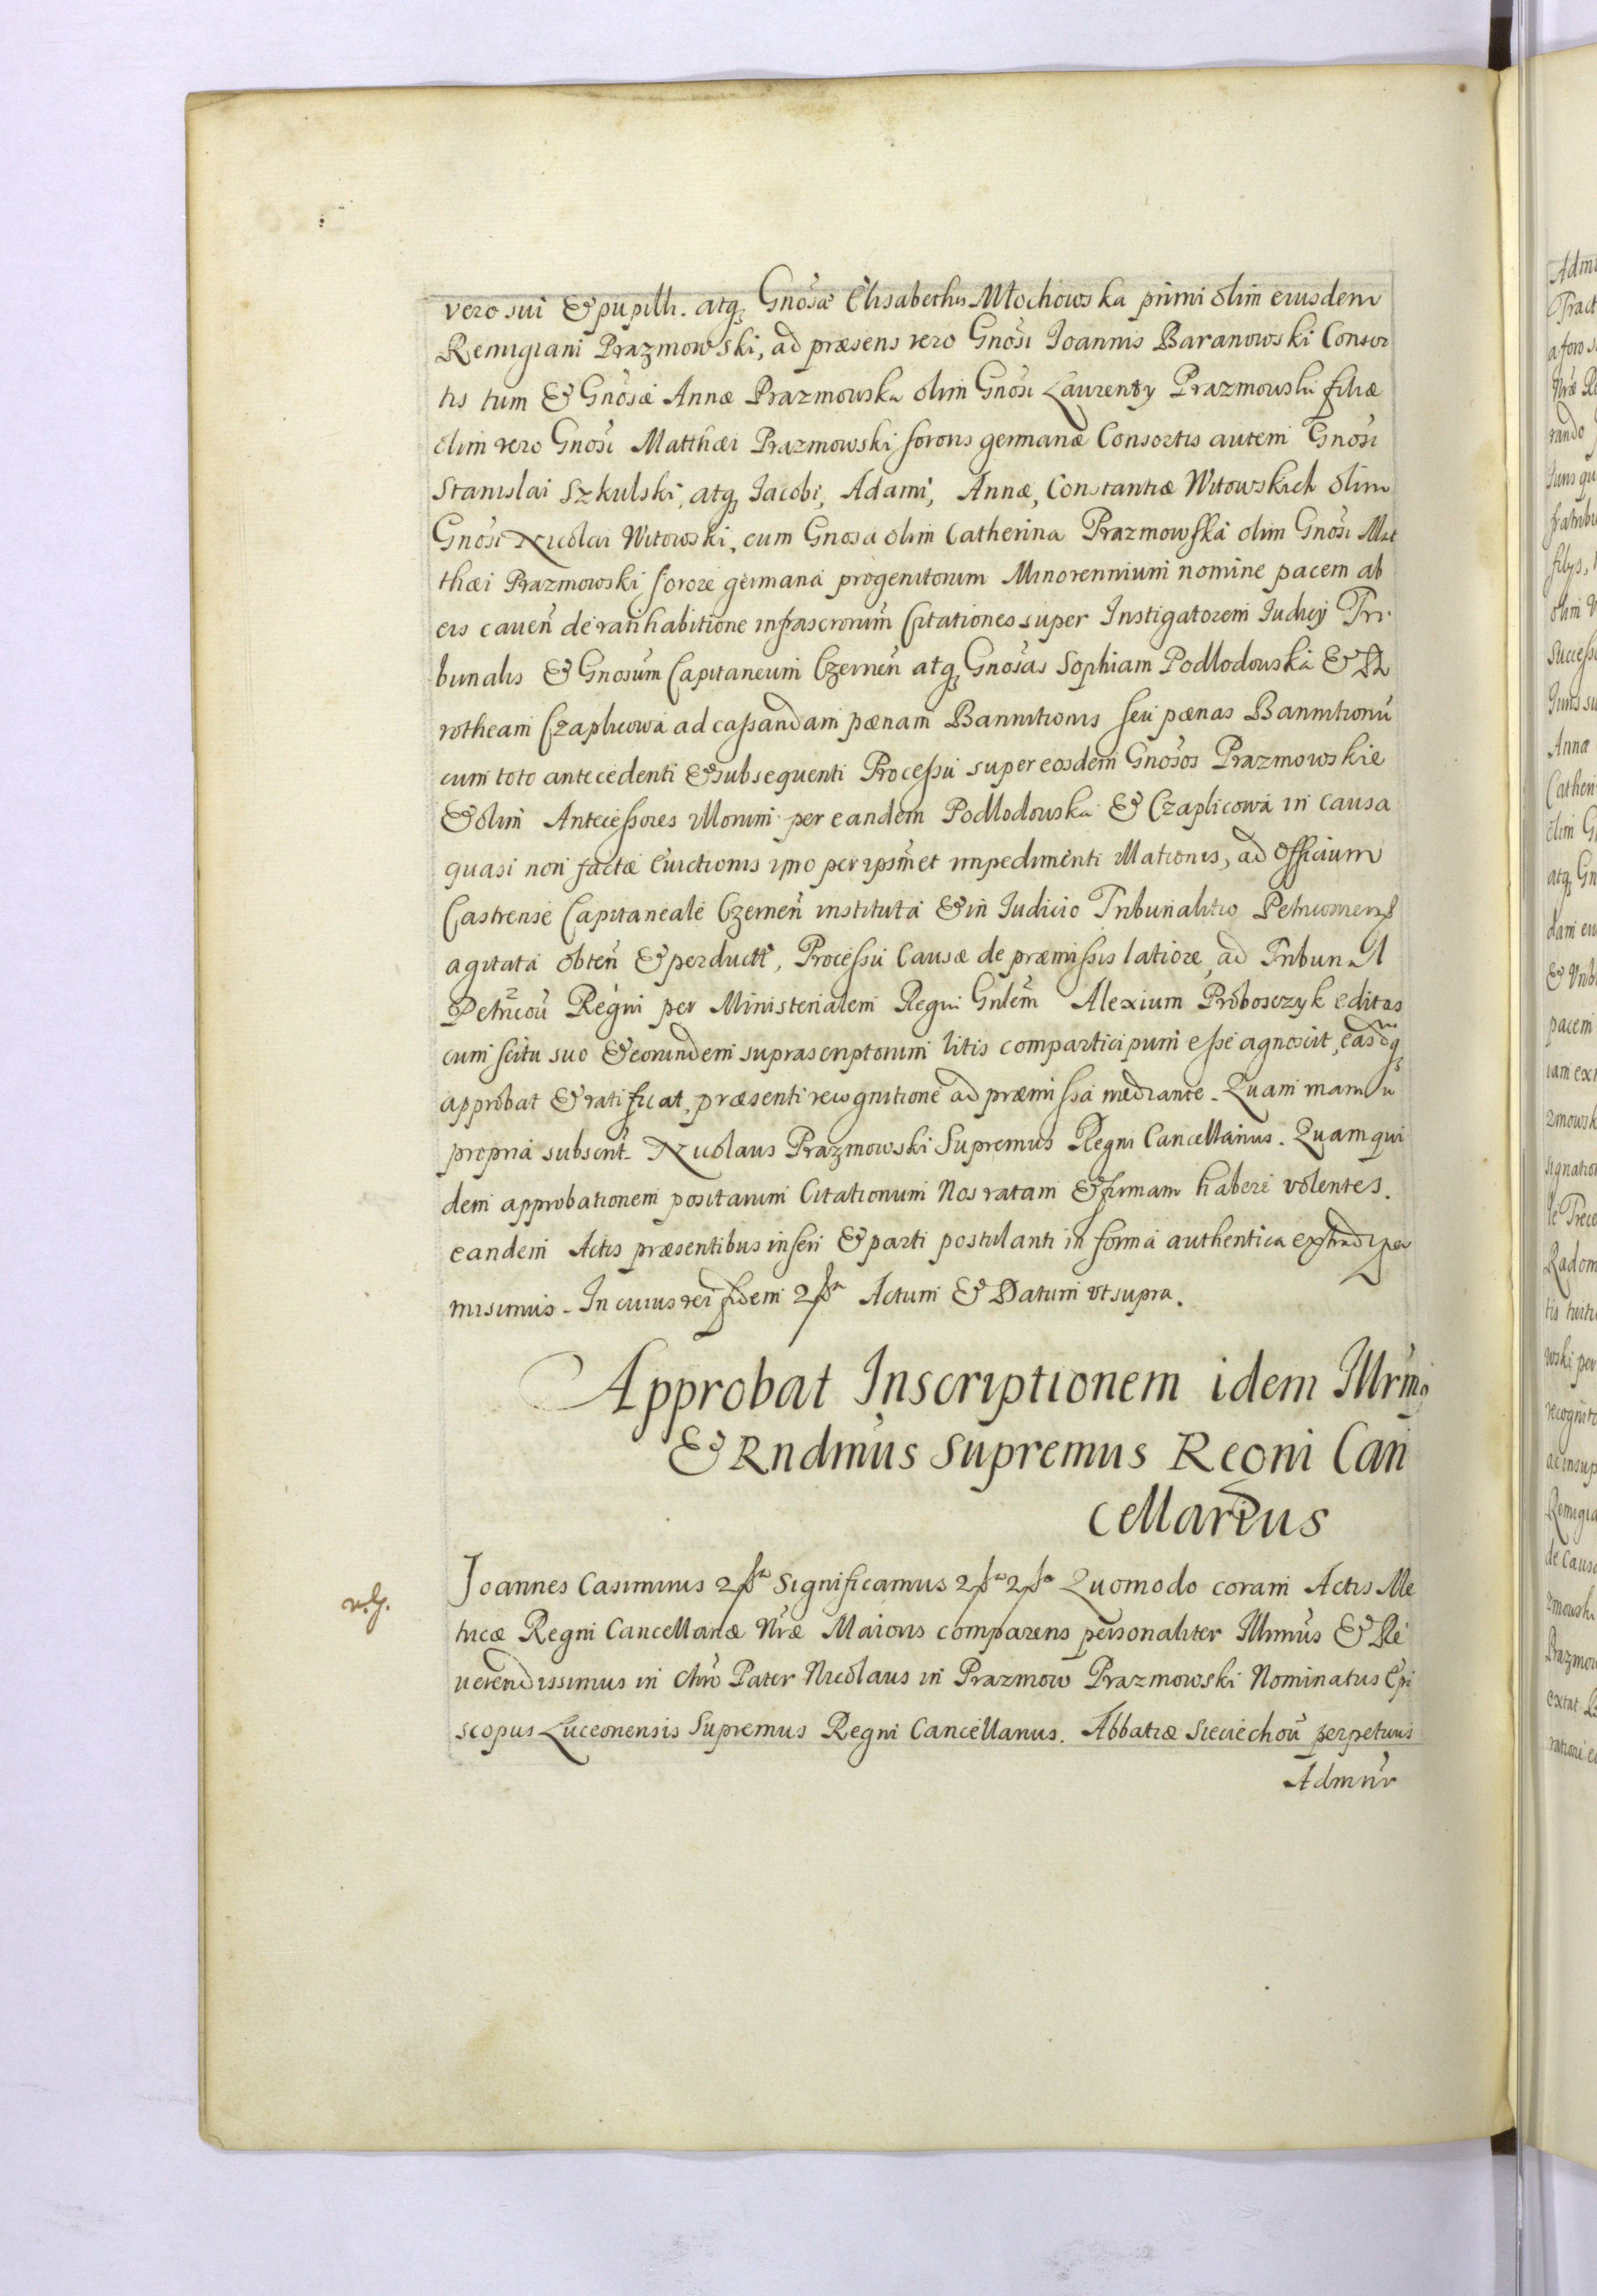 vero sui & pupilli. atq; Gnosæ Elisabethis Młochowska primi olim eiusdem
Remigiani Prazmowski, ad præsens vero Gnosi Joannis Baranowski Consor
tis tum & Gnosæ Annæ Prazmowska olim Gnosi Laurenty Prazmowski filiæ
olim vero Gnosi Matthæi Prazmowski sororis germanæ Consortis autem Gnosi
Stanislai Szkulski, atq; Jacobi, Adami, Annæ, Constantiæ Witowskich olim
Gnosi Nicolai Witowski, cum Gnosa olim Catherina Prazmowska olim Gnosi Mat
thæi Prazmowski sorore germana progenitorum Minorennium nomine pacem ab
eis caven̄ de ratihabitione infrascrorum Citationes super Instigatorem Judicij Tri
bunalis & Gnosum Capitaneum Czernen̄ atq; Gnosas Sophiam Podlodowska & Do
rotheam Czaplicowa ad cassandam pænam Bannitionis seu pænas Bannitionū
cum toto antecedenti & subsequenti Processu super eosdem Gnosos Prazmowskie
& olim Antecessores illorum per eandem Podlodowska & Czaplicowa in causa
quasi non factæ Evictionis imo per ipsmet impedimenti illationis, ad Officium
Castrense Capitaneale Czernen̄ instituta & in Judicio Tribunalitio Petricomens
agitata obten̄ & perductt, Processu Causæ de præmissis latiore, ad Tribunal
Petricoū Regni per Ministerialem Regni Gnlem Alexium Proboszczyk editas
cum scitu suo & eorundem suprascriptorum litis comparticipum esse agnoscit, easdq;
approbat & ratificat, præsenti recognitione ad præmissa mediante. Quam manu
propria subscrit. Nicolaus Prazmowski Supremus Regni Cancellarius. Quam qui
dem approbationem positarum Citationum Nos ratam & firmam habere volentes.
eandem Actis præsentibus inseri & parti postulanti in forma authentica extradi per
misimus. In cuius rei fidem 2ſa Actum & Datum ut supra.
Approbat Inscriptionem idem Illrmo
& Rndmus Supremus Regni Can
cellarius
v.g.
Joannes Casimirus 2ſa Significamus 2ſa 2ſa Quomodo coram Actis Me
tricæ Regni Cancellariæ Nræ Maioris comparens personaliter Illmus & Re
verendissimus in Chro Pater Nicolaus in Prazmow Prazmowski Nominatus Epi
scopus Luceonensis Supremus Regni Cancellarius. Abbatiæ Sieciechoū perpetuus
Admnr